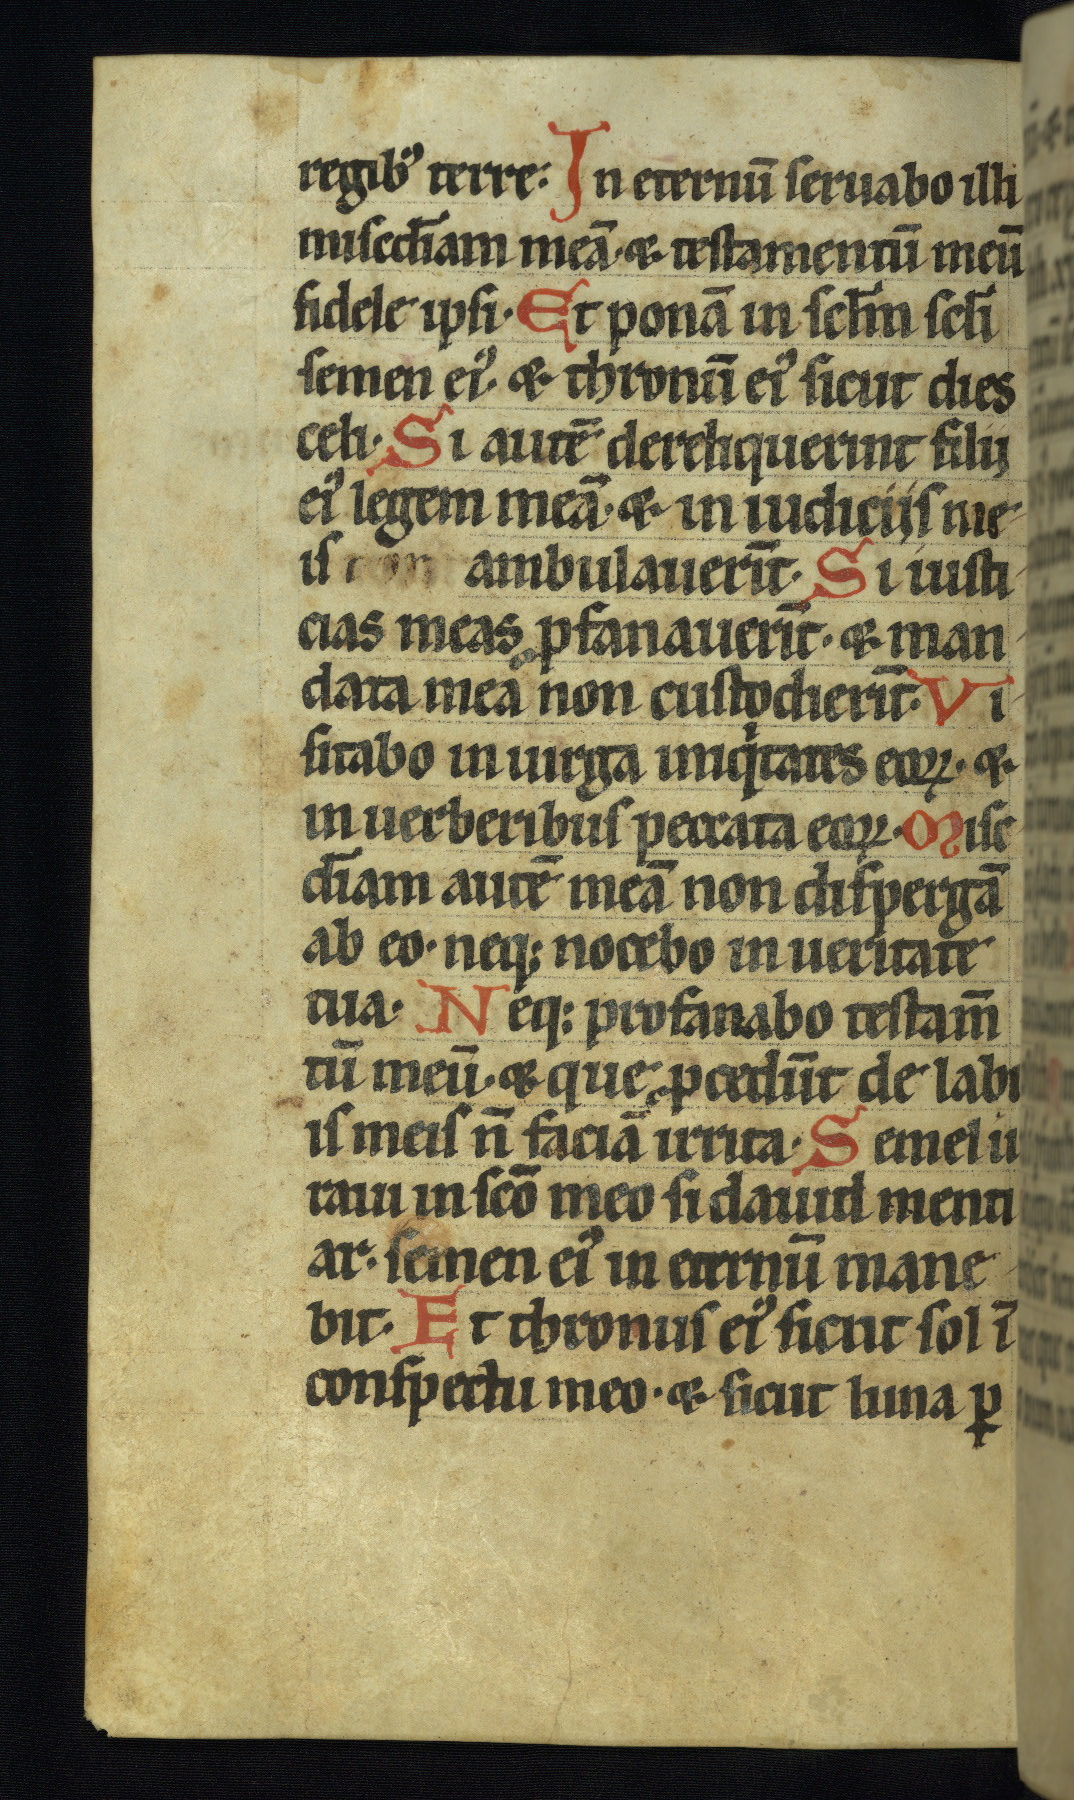 regib᷒ terre: In eternū seruabo illi
miscd̄iam meā· ⁊· testamentū meū
fidele ipsi· Et ponā in scl̄m scl̄i
semen ei᷒· ⁊· thronū ei᷒ sicut dies
celi· Si autē dereliquerint filij
ei᷒ legem meā· ⁊· in iudicijs me
is non ambulauerīt· Si iusti
cias meas ꝓfanauerīt· ⁊· man
data mea non custodierīt· Vi
sitabo in uirga iniqⁱtates eoꝝ· ⁊·
in uerberibus peccata eoꝝ· Misc
d̄iam autē meā non dispergā
ab eo· neq; nocebo in ueritate
tua· Neq; profanabo testam̄
tū meū· ⁊· que ꝓcedūt de labi
is meis n̄ faciā irrita· Semel iu
raui in sc̄o meo si dauid menti
ar· semen ei᷒ in eternū mane
bit· Et thronus ei᷒ sicut sol ī
conspectu meo· ⁊· sicut luna ꝑ